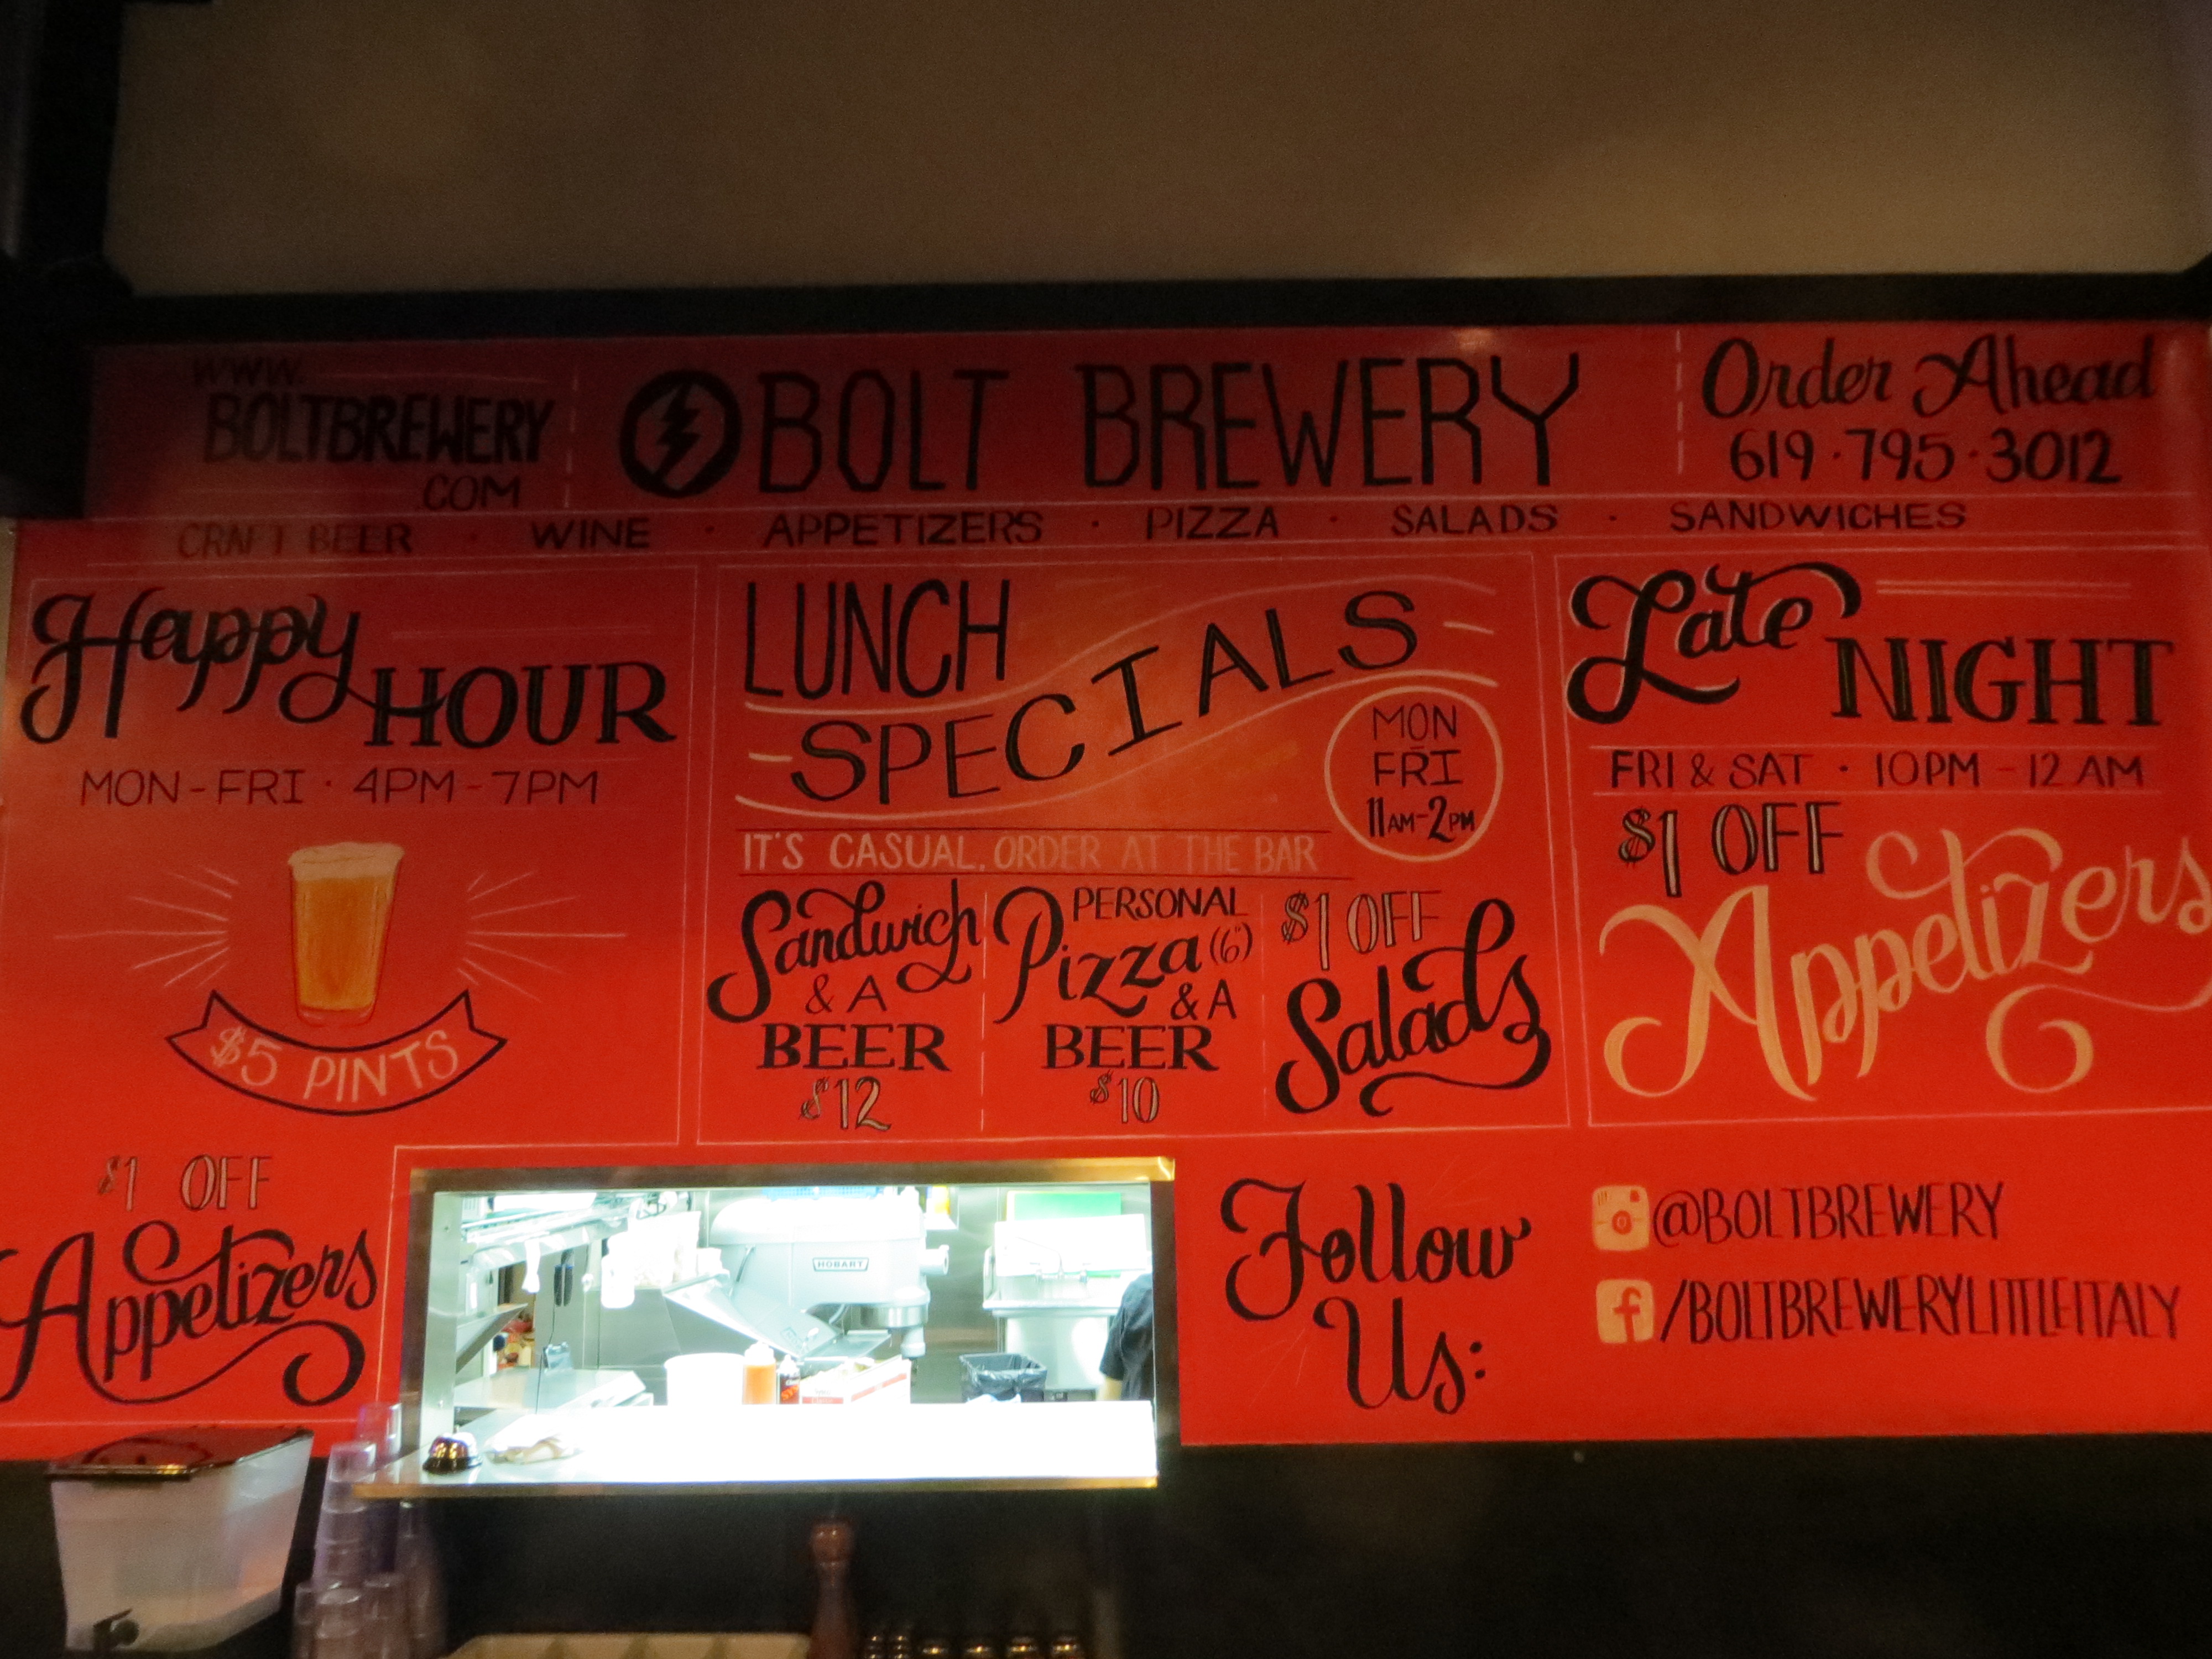 WWW.
BOLTBREWERY
.COM
BOLT BREWERY
Order Ahead
619·795·3012
CRAFT BEER · WINE · APPETIZERS · PIZZA · SALADS · SANDWICHES
Happy
HOUR
MON-FRI · 4PM-7PM
$5 PINTS
$1 OFF
Appetizers
LUNCH
SPECIALS
MON
-
FRI
11AM-2PM
IT'S CASUAL, ORDER AT THE BAR
Sandwich
& A
BEER
$12
PERSONAL
Pizza (6")
& A
BEER
$10
$1 OFF
Salads
Late
NIGHT
FRI & SAT · 10PM - 12AM
$1 OFF
Appetizers
HOBART
Follow
Us:
@BOLTBREWERY
f/BOLTBREWERYLITTLEITALY